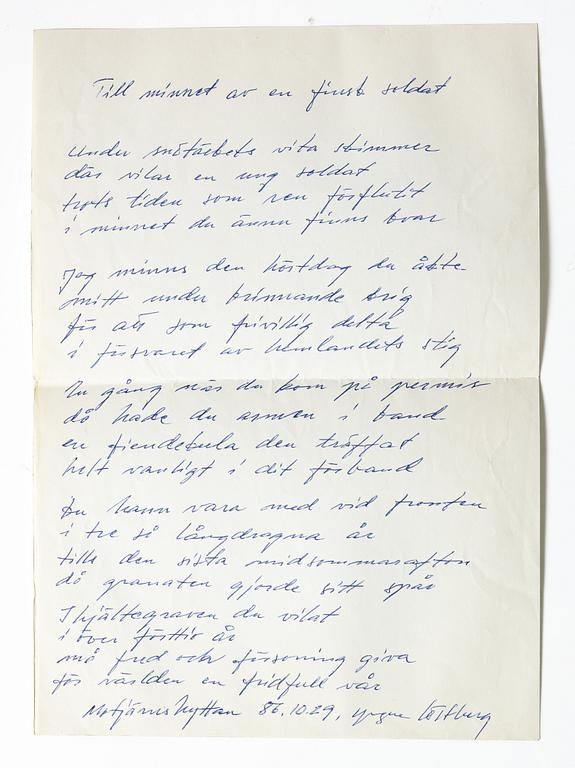 Till minnet av en finsk soldat
Under snötäckets vita skimmer
där vilar en ung soldat
trots tiden som ren förflutit
i minnet du ännu finns kvar
Jag minns den höstdag du åkte
mitt under brinnande krig
för att som frivillig delta
i försvaret av hemlandets stig
En gång när du kom på permis
då hade du armen i band
en fiendekula den träffat
helt vanligt i dit förband
Du hann vara med vid fronten
i tre så långdragna år
tills den sista midsommarafton
då granaten gjorde sitt spår
I hjältegraven du vilat
i över förttio år
må fred och försoning giva
för världen en fridfull vår
Motjärnshyttan 86.10.29,